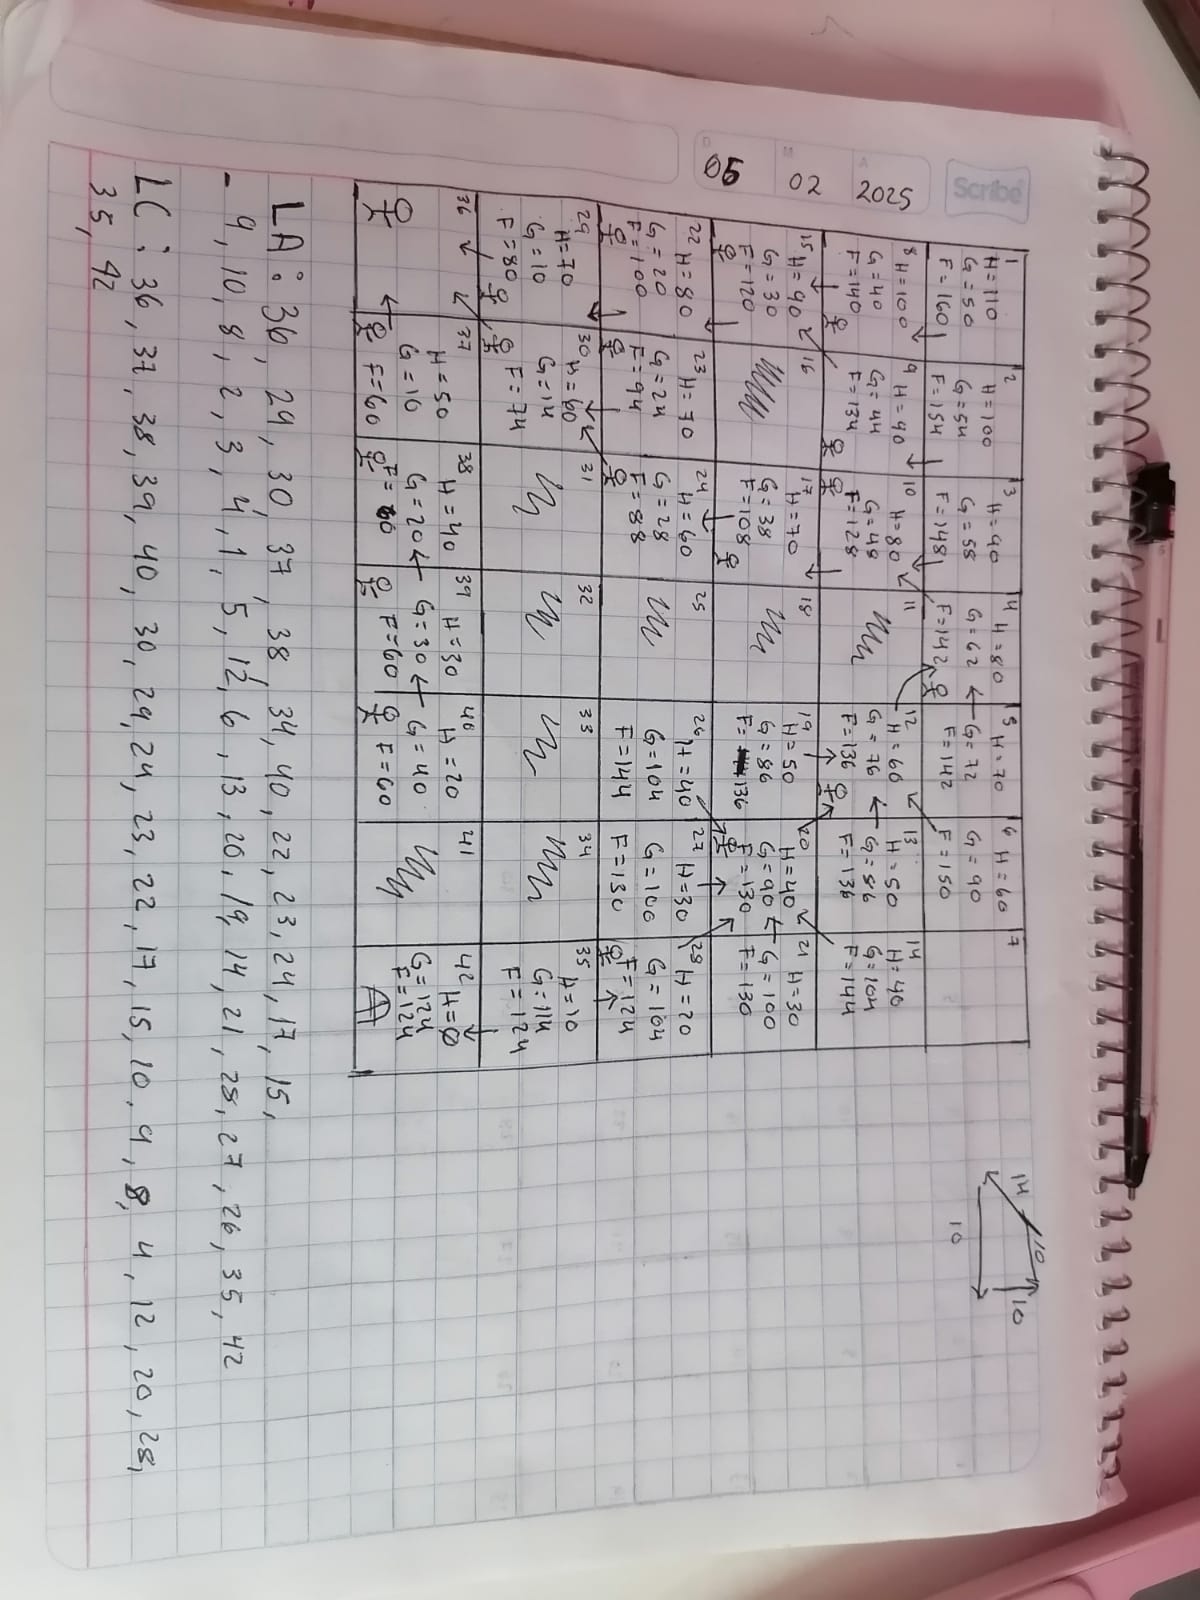 Scribe
D M A
05 02 2025
1
H=110
G=50
F=160
2
H=100
G=54
F=154
3 H=90
G=58
F=148
4 H=80
G=62
F=142
5 H=70
G=72
F=142
6 H=60
G=90
F=150
7
8 H=100
G=40
F=140
9 H=90
G=44
F=134
10 H=80
G=48
F=128
11
12
H=60
G=76
F=136
13
H=50
G=86
F=136
14
H=40
G=104
F=144
15 H=90
G=30
F=120
16
17
H=70
G=38
F=108
18
19
H=50
G=86
F=136
20
H=40
G=90
F=130
21 H=30
G=100
F=130
22 H=80
G=20
F=100
23 H=70
G=24
F=94
24
H=60
G=28
F=88
25
26 H=40
G=104
F=144
27 H=30
G=100
F=130
28 H=20
G=104
F=124
29
H=70
G=10
F=80
30 H=60
G=14
F=74
31
32
33
34
35
H=10
G=114
F=124
36
37
H=50
G=10
F=60
38 H=40
G=20
F=60
39 H=30
G=30
F=60
40 H=20
G=40
F=60
41
42 H=0
G=124
F=124
14
10
10
10
LA: 36, 29, 30, 37, 38, 34, 40, 22, 23, 24, 17, 15,
- 9, 10, 8, 2, 3, 4, 1, 5, 12, 6, 13, 20, 19, 14, 21, 28, 27, 26, 35, 42
LC: 36, 37, 38, 39, 40, 30, 29, 24, 23, 22, 17, 15, 10, 9, 8, 4, 12, 20, 28,
35, 42